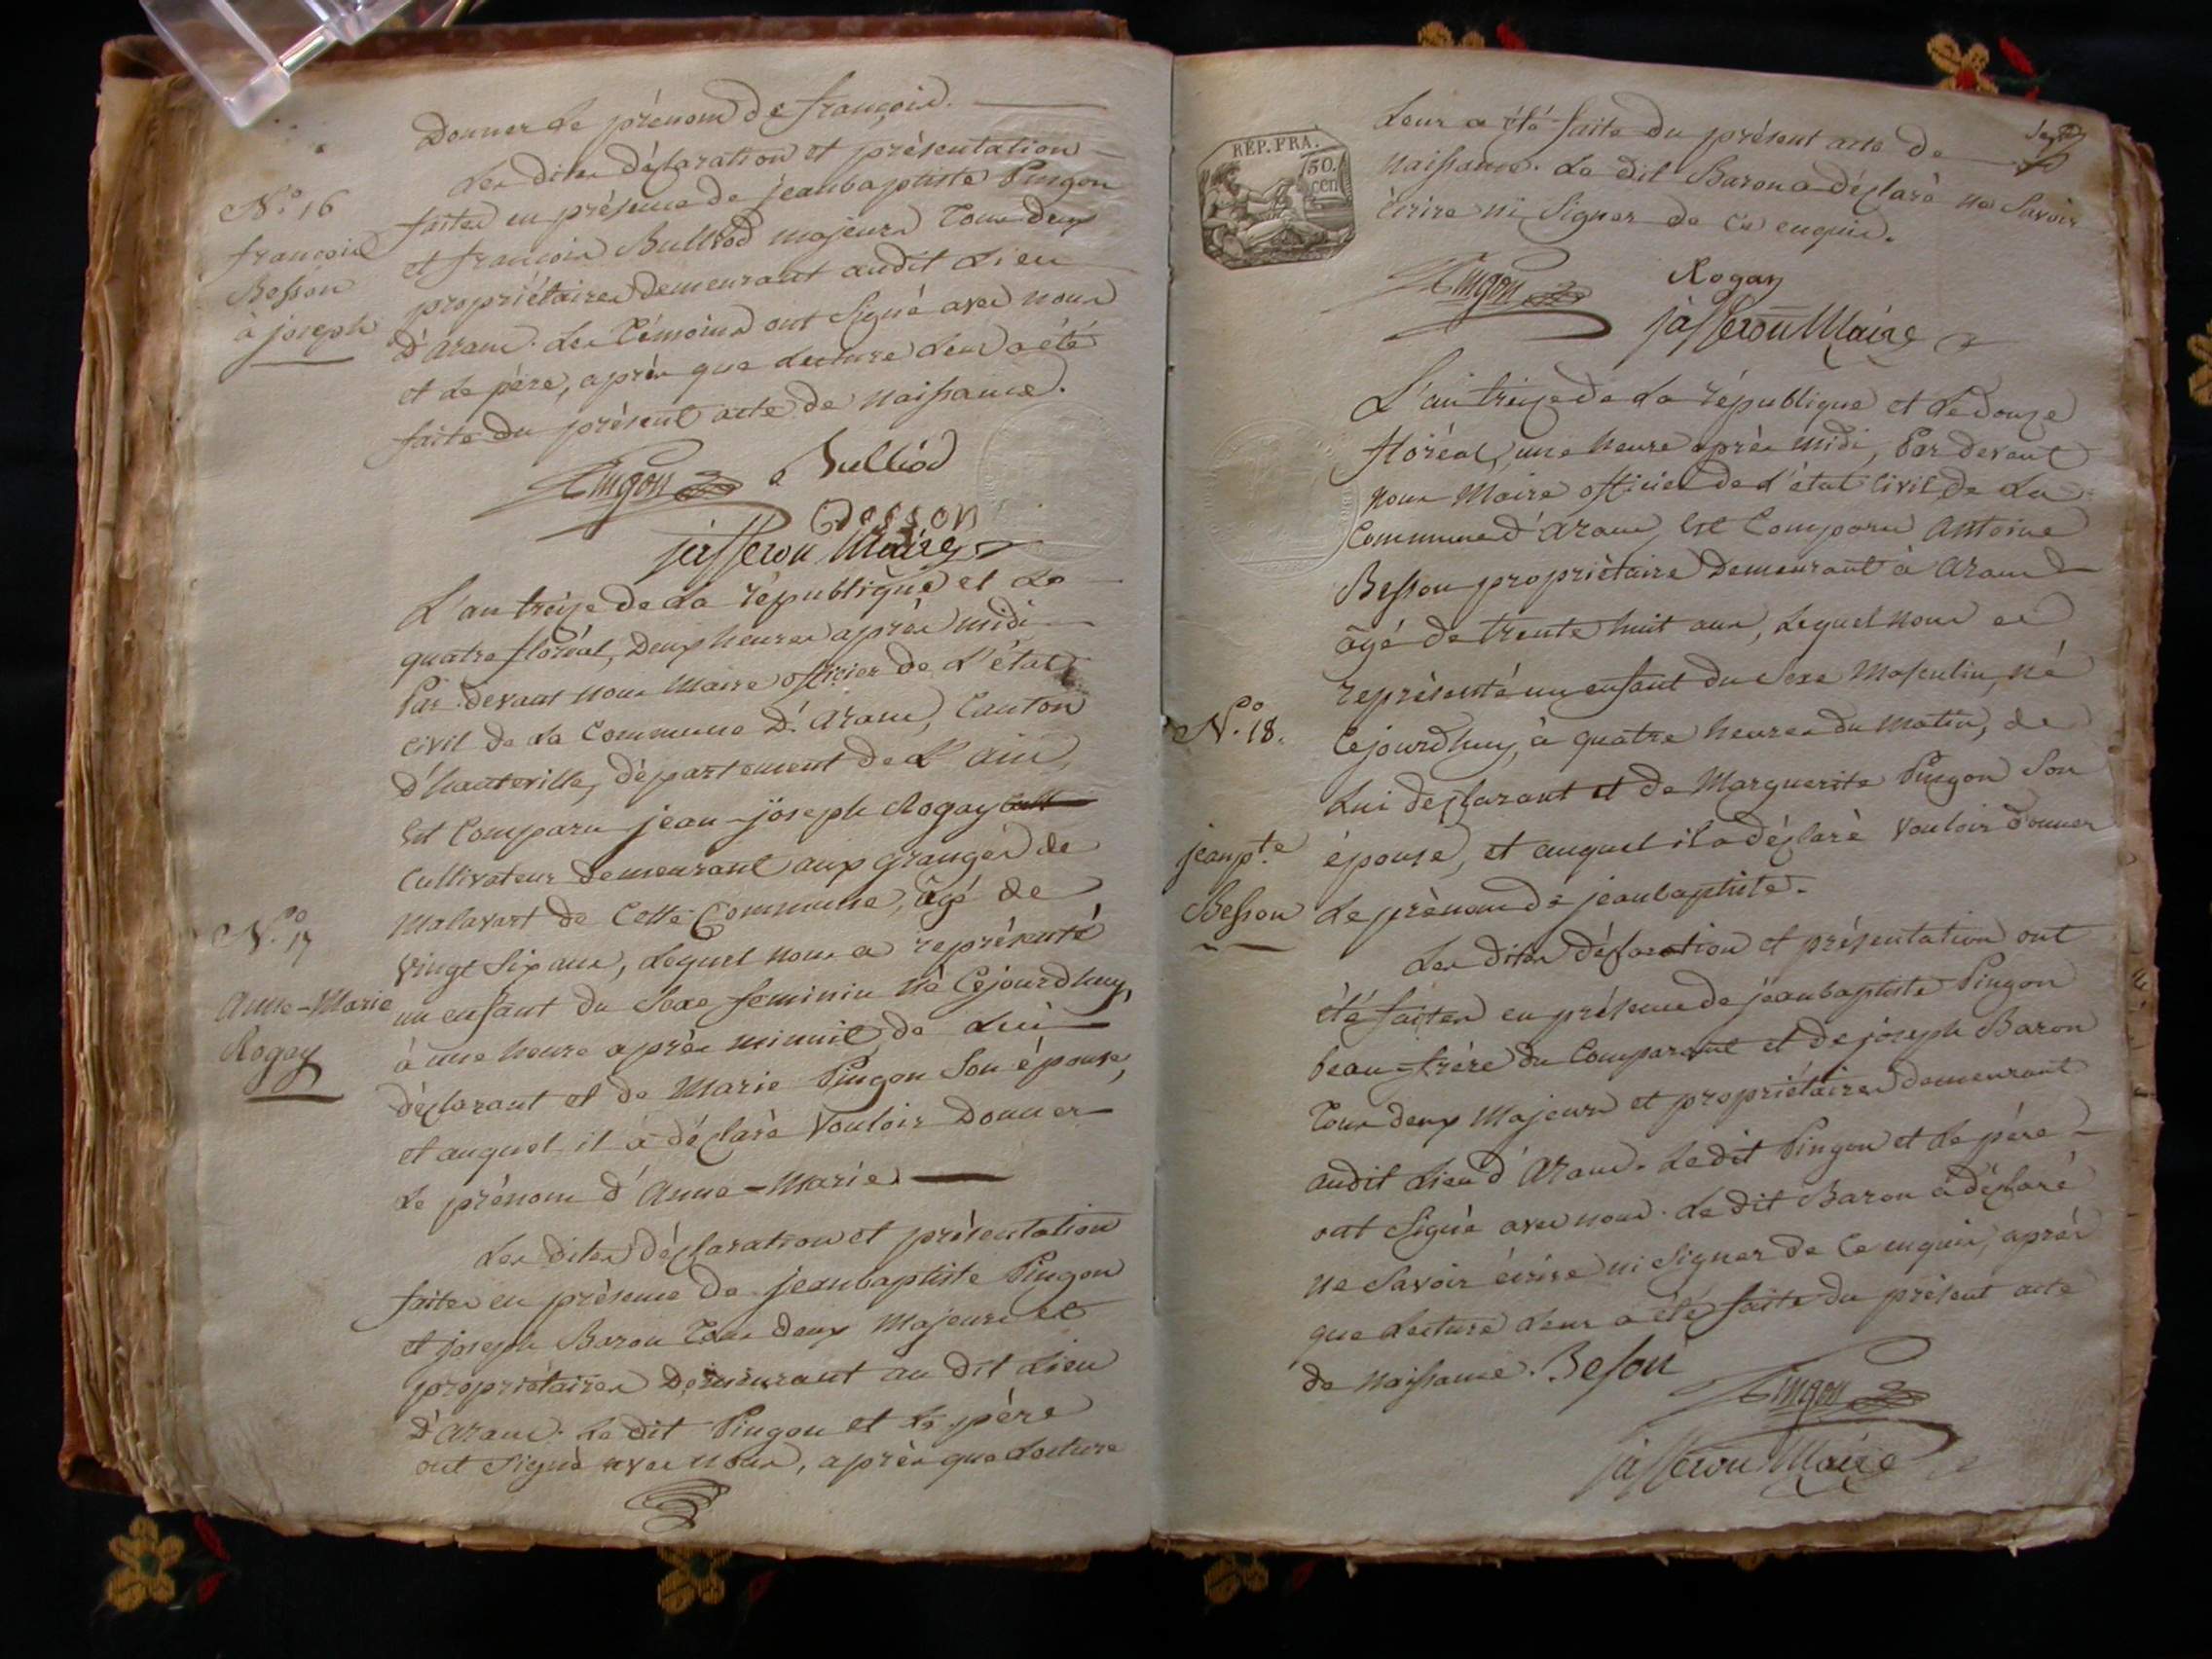 Donner le prénom de françois.
Les dites déclaration et présentation
N.o 16
françois
Besson
à joseph
faites en présence de jeanbaptiste Pingon
et françois Bulliod majeurs Tous deux
propriétaires demeurant audit Lieu
d'arane. Les Témoins ont Signé avec nous
et le père, après que Lecture Leur a été
faite du présent acte de naissance.
Pingon Bulliod
Besson
jasseron Maire
L'an treize de la république et le
quatre floréal, Deux heures après midi
Par devant nous Maire officier de L'état
civil de la Commune D'arane, Canton
d'hauteville, département de L'ain,
Est Comparu jean-joseph Rogay
Cultivateur demeurant aux granges de
Malavart de Cette Commune, âgé de
N.o 17
Anne-Marie
Rogay
vingt Six ans, Lequel nous a représenté
un enfant du Sexe feminin né Cejourdhuy,
à une heure après minuit, de Lui
déclarant et de Marie Pingon Son épouse,
et auquel il a déclaré Vouloir Donner
Le prénom d'Anne-Marie
Les dites déclaration et présentation
faites en présence de jeanbaptiste Pingon
et joseph Baron Tous deux Majeurs et
propriétaires Demeurant au dit Lieu
d'arane. Le dit Pingon et le père
ont Signé avec nous, après que Lecture
RÉP. FRA.
50.
cen
Leur a été faite du présent acte de
naissance. Le dit Baron a déclaré ne Savoir
écrire ni Signer de Ce enquis.
Pingon Rogay
jasseron Maire
L'an treize de la république et le douze
floréal, une heure après midi, Par devant
nous Maire officier de l'état Civil de la
Commune d'arane, Est Comparu Antoine
Besson propriétaire Demeurant à arane
âgé de trente huit ans, Lequel nous a
représenté un enfant du Sexe Masculin, né
N.o 18.
Cejourdhuy, à quatre heures du matin, de
Lui déclarant et de Marguerite Pingon Son
jeanpte
Besson
épouse, et auquel il a déclaré Vouloir donner
Le prénom de jeanbaptiste.
Les dites déclaration et présentation ont
été faites en présence de jeanbaptiste Pingon
beau-frère du Comparant et de joseph Baron
Tous deux Majeurs et propriétaires demeurant
audit Lieu d'arane. Le dit Pingon et le père
ont Signé avec nous. Le dit Baron a déclaré
ne Savoir écrire ni Signer de Ce enquis, après
que Lecture Leur a été faite du présent acte
de naissance. Beson
Pingon
jasseron Maire